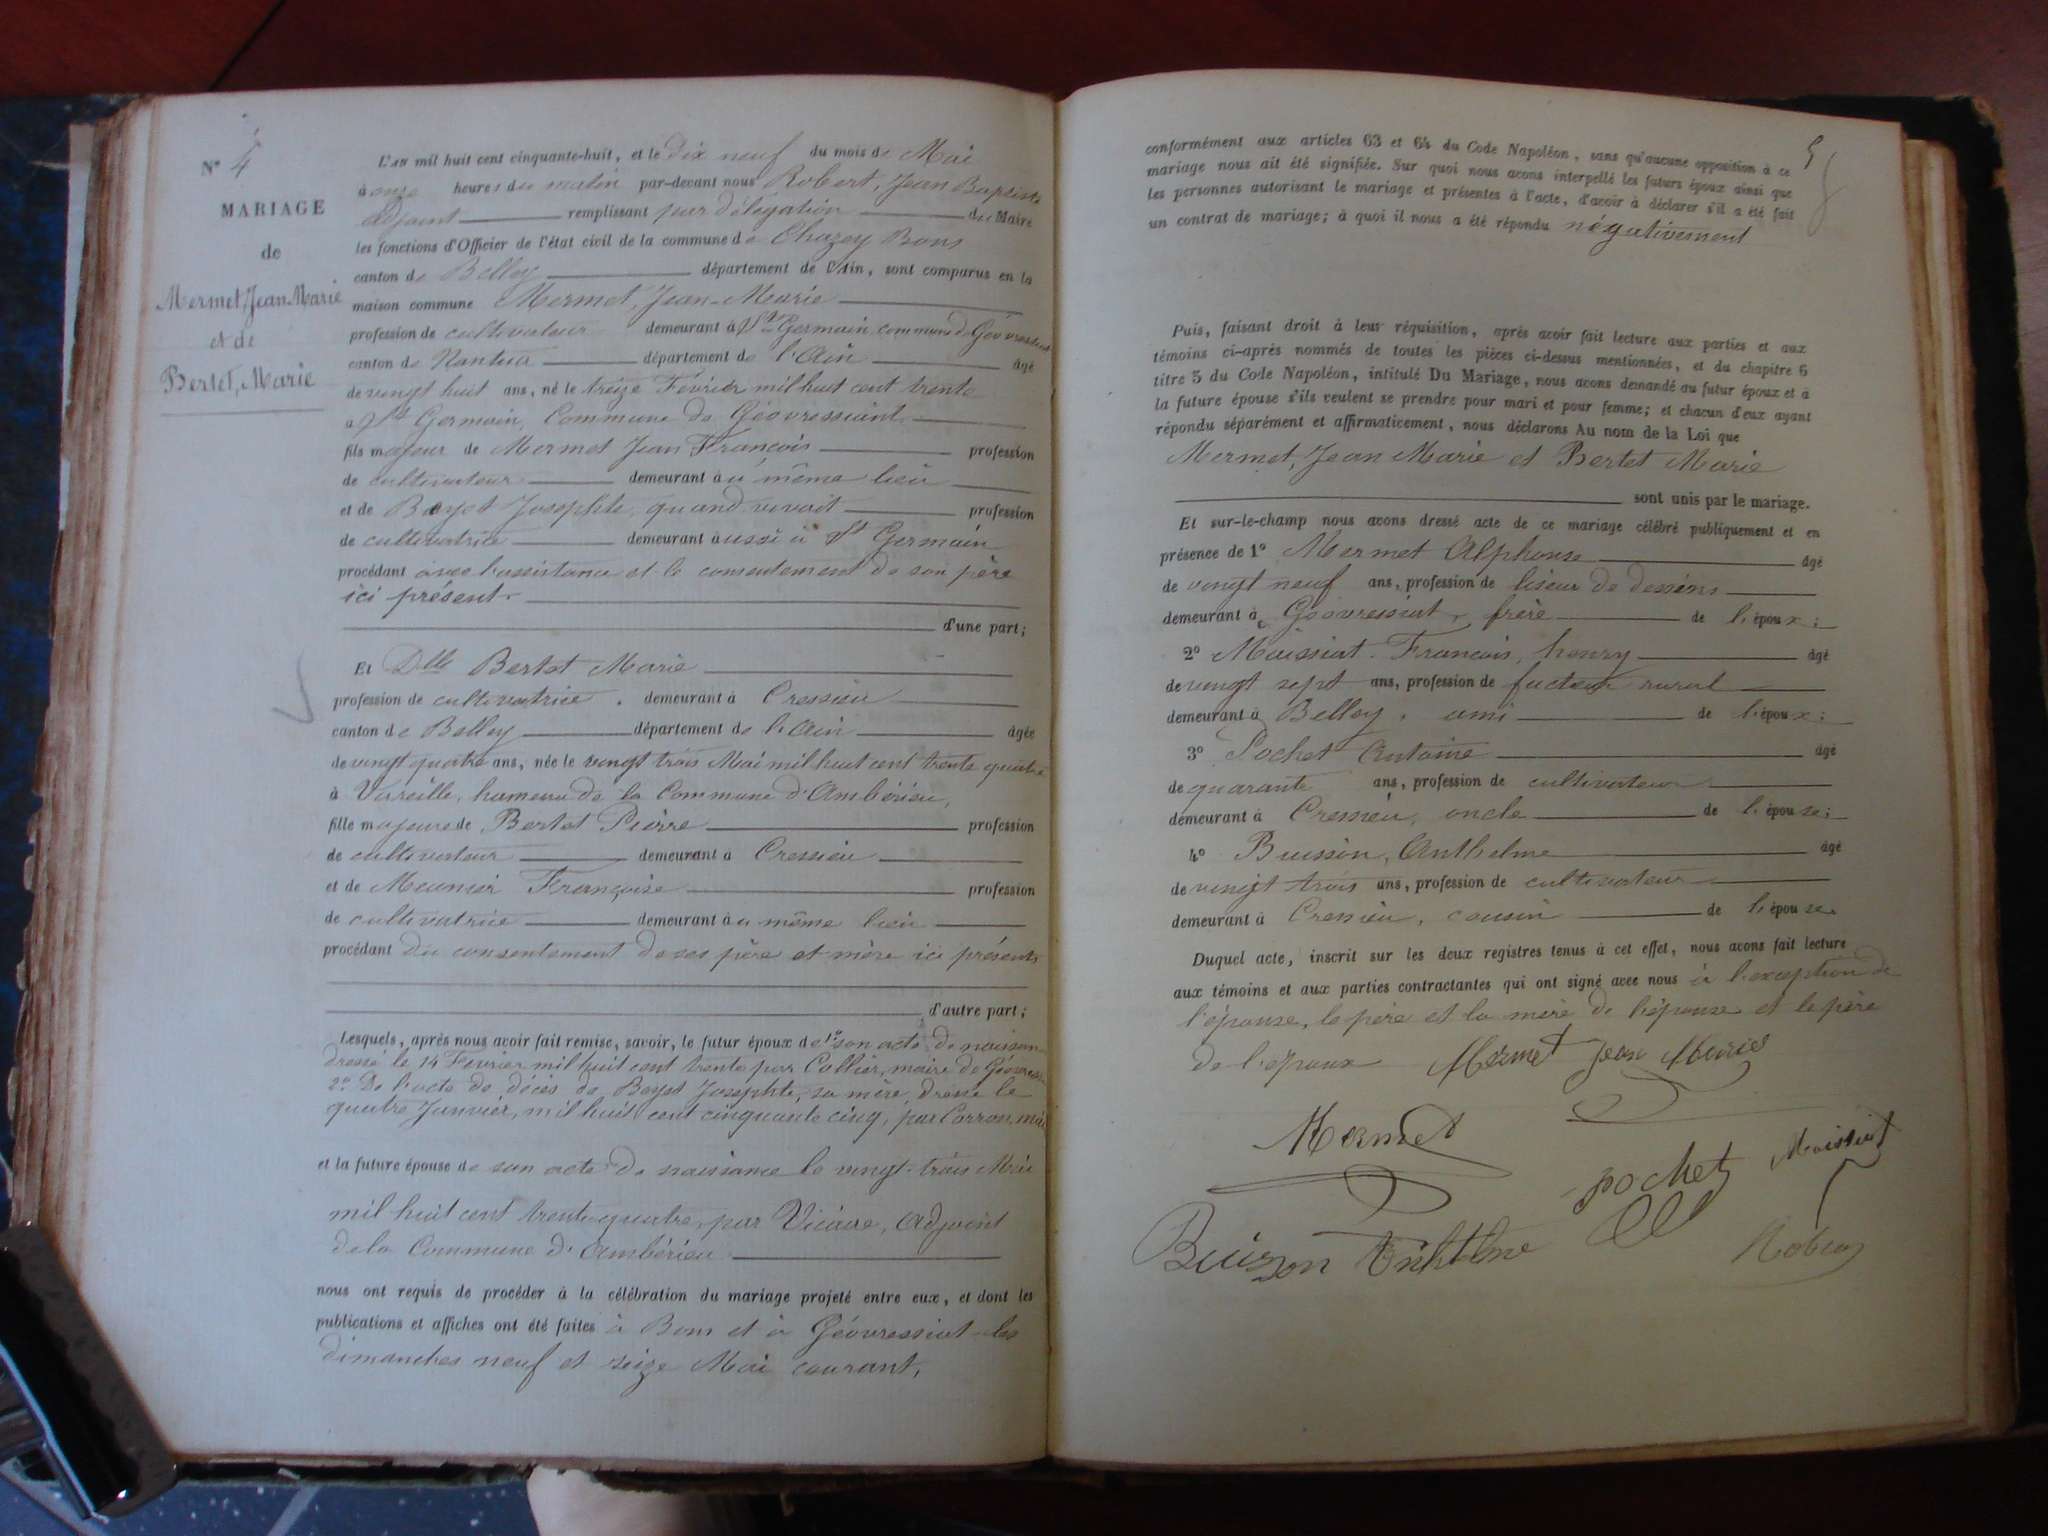 N° 4
MARIAGE
de
Mermet, Jean Marie
et de
Bertet, Marie
L'an mil huit cent cinquante-huit, et le dix neuf du mois de Mai
à onze heures du matin par-devant nous Robert, Jean Baptiste
Adjoint remplissant par délégation du Maire
les fonctions d'Officier de l'état civil de la commune de Chazey Bons
canton de Belley département de l'Ain, sont comparus en la
maison commune Mermet, Jean-Marie
profession de cultivateur demeurant à St Germain commune de Géovressiat
canton de Nantua département de l'Ain âgé
de vingt huit ans, né le treize Février mil huit cent trente
à St Germain, Commune de Géovressiat
fils majeur de Mermet Jean François profession
de cultivateur demeurant au même lieu
et de Josephte, quand vivait profession
de cultivatrice demeurant aussi à St Germain
procédant avec l'assistance et le consentement de son père
ici présent
d'une part;
Et Dlle Bertet Marie
profession de cultivatrice demeurant à Cressieu
canton de Belley département de l'Ain âgée
de vingt quatre ans, née le vingt trois Mai mil huit cent trente quatre
à Vareille, hameau de la Commune d'Ambérieu,
fille majeure de Bertet Pierre profession
de cultivateur demeurant à Cressieu
et de Meunier Françoise profession
de cultivatrice demeurant au même lieu
procédant du consentement de ses père et mère ici présents
d'autre part;
Lesquels, après nous avoir fait remise, savoir, le futur époux de 1° son acte de naissan
dressé le 14 Février mil huit cent trente par Collier, maire de
2° De l'acte de décès de Josephte, sa mère, dressé le
quatre Janvier, mil huit cent cinquante cinq, par Carron, mai
et la future épouse de son acte de naissance le vingt-trois Mai
mil huit cent trente quatre, par Adjoint
de la Commune d'Ambérieu
nous ont requis de procéder à la célébration du mariage projeté entre eux, et dont les
publications et affiches ont été faites à Bons et à Géovressiat les
dimanches neuf et seize Mai courant,
5
conformément aux articles 63 et 64 du Code Napoléon, sans qu'aucune opposition à ce
mariage nous ait été signifiée. Sur quoi nous avons interpellé les futurs époux ainsi que
les personnes autorisant le mariage et présentes à l'acte, d'avoir à déclarer s'il a été fait
un contrat de mariage; à quoi il nous a été répondu négativement
Puis, faisant droit à leur réquisition, après avoir fait lecture aux parties et aux
témoins ci-après nommés de toutes les pièces ci-dessus mentionnées, et du chapitre 6
titre 5 du Code Napoléon, intitulé Du Mariage, nous avons demandé au futur époux et à
la future épouse s'ils veulent se prendre pour mari et pour femme; et chacun d'eux ayant
répondu séparément et affirmativement, nous déclarons Au nom de la Loi que
Mermet, Jean Marie et Bertet Marie
sont unis par le mariage.
Et sur-le-champ nous avons dressé acte de ce mariage célébré publiquement et en
présence de 1° Mermet Alphonse âgé
de vingt neuf ans, profession de liseur de dessins
demeurant à Géovressiat, frère de l'époux;
2° Moissiat François, henry âgé
de vingt sept ans, profession de facteur rural
demeurant à Belley, ami de l'époux;
3° Pochet Antoine âgé
de quarante ans, profession de cultivateur
demeurant à Cressieu, oncle de l'épouse;
4° Buisson, Anthelme âgé
de vingt trois ans, profession de cultivateur
demeurant à Cressieu, cousin de l'épouse
Duquel acte, inscrit sur les deux registres tenus à cet effet, nous avons fait lecture
aux témoins et aux parties contractantes qui ont signé avec nous à l'exception de
l'épouse, le père et la mère de l'épouse et le père
de l'époux Mermet Jean Marie
Mermet
pochet Moissiat
Buisson Anthelme Robert